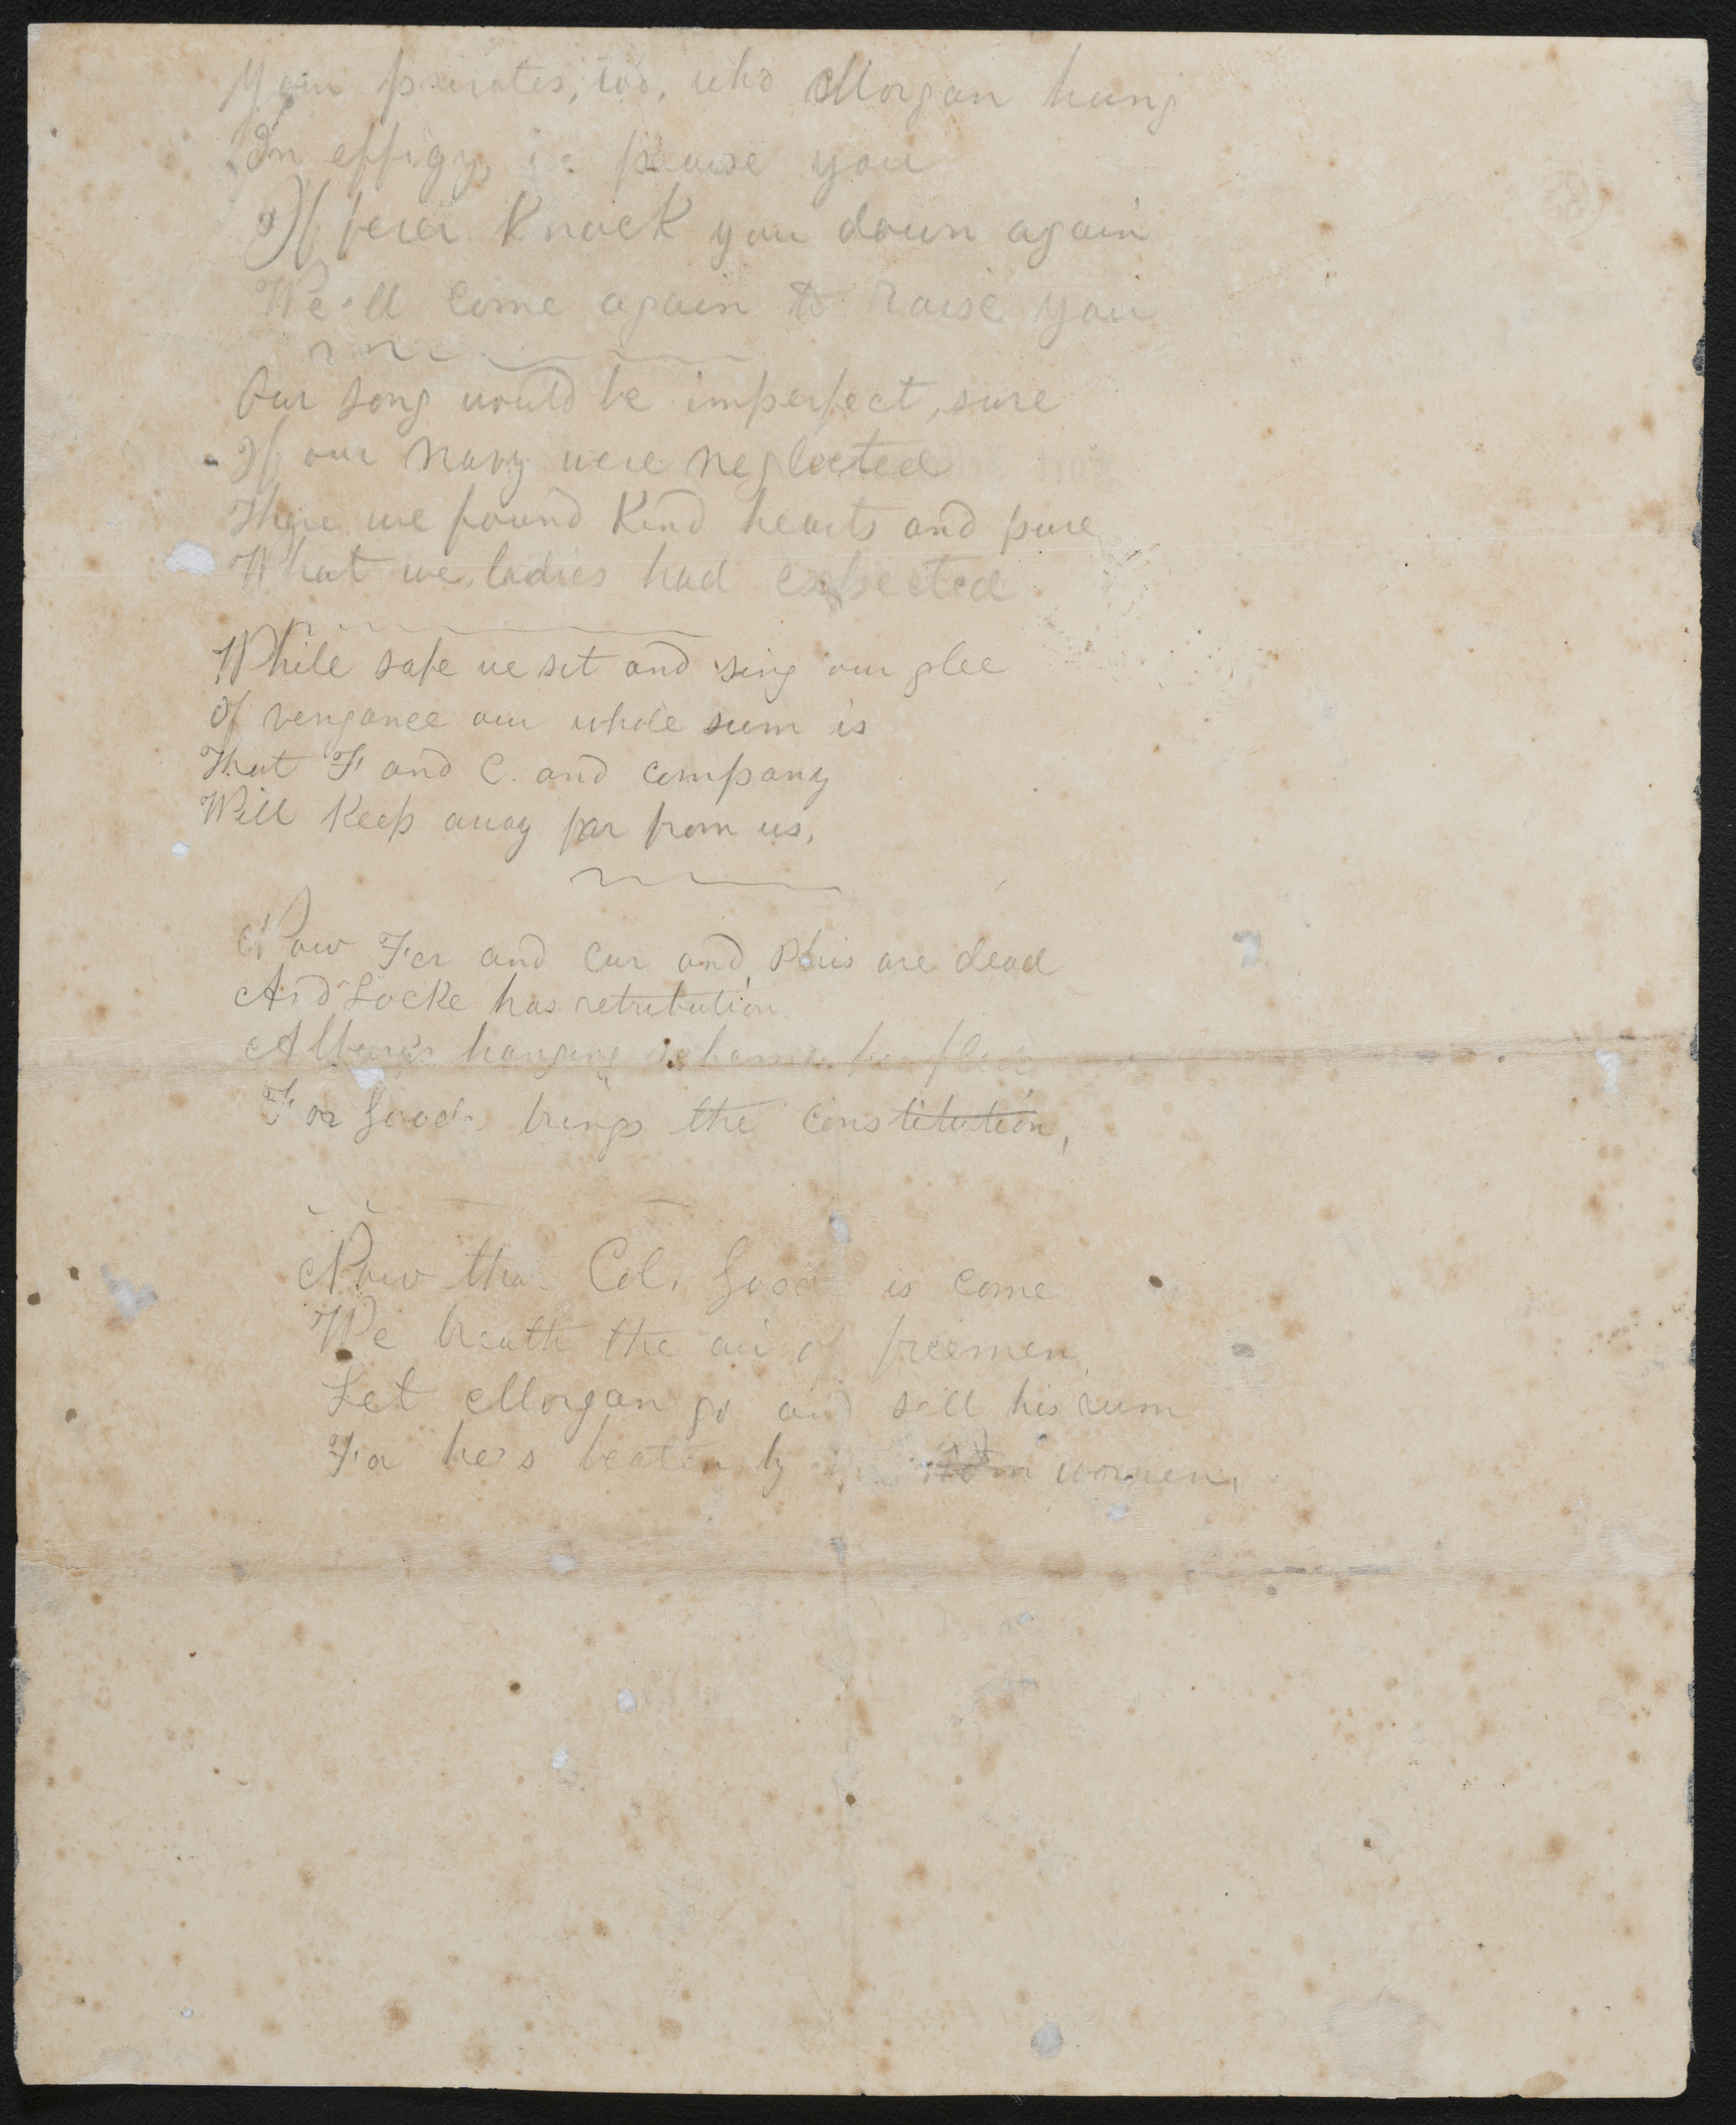 Your pirates, too, who Morgan hung
In effigy, to praise you
If fever knock you down again
We'll come again to raise you
Our song would be imperfect, sure
If our Navy were neglected
There we found kind hearts and pure
What we, ladies had expected
While safe we sit and sing our glee
Of vengance our whole sum is
That F and C. and company
Will Keep away far from us,
Now Fer and Cur and are dead
And Locke has retribution
hanging scheme has fled
For Goode brings the constitution,
Now that Col. Goode is come
We breath the air of freemen
Let Morgan go and sell his rum
For he's beaten by women,